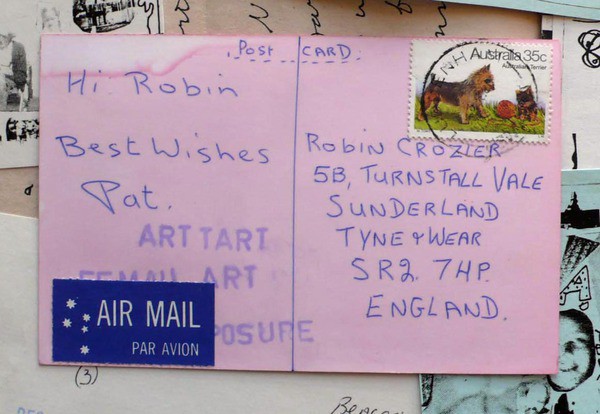 Post CARD.
Hi Robin
Best Wishes
Pat.
ART TART
FEMAIL ART
POSURE
AIR MAIL
PAR AVION
Australia 35c
Australian Terrier
ROBIN CROZIER
5B, TURNSTALL VALE
SUNDERLAND
TYNE & WEAR
SR2. 7HP.
ENGLAND.
(3)